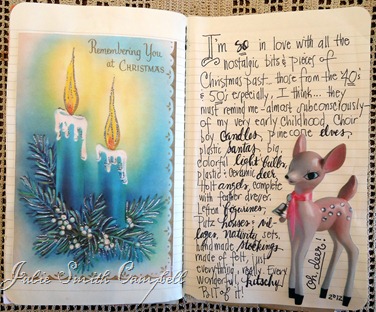 Remembering You
at CHRISTMAS
I'm so in love with all the
nostalgic bits & pieces of
Christmas past - those from the 40's
& 50's especially, I think... they
must remind me - almost subconsciously -
of my very early childhood. Choir
boy candles, pine cone elves,
plastic santas, big,
colorful light bulbs,
plastic & ceramic deer,
foil angels, complete
with feather dresses.
Lefton figurines,
Putz houses & vil-
lages, nativity sets,
handmade stockings
made of felt, just
everything, really. Every
wonderful, kitschy
BIT of it!
oh deer!
2012
Julie Smith Campbell